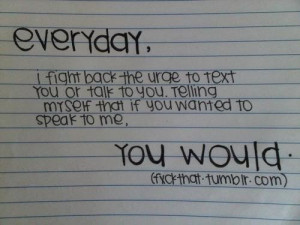 everyday,
i fight back the urge to text
you or talk to you. telling
myself that if you wanted to
speak to me,
you would.
(fxckthat.tumblr.com)